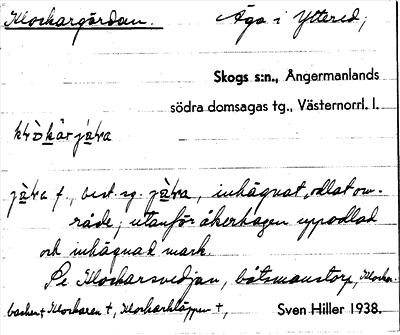 Klockargärdan. Äga i Yttered;
Skogs s:n., Ångermanlands
södra domsagas tg., Västernorrl. l.
best. sg. inhägnat, odlat om-
råde; utanför åkerhagen uppodlad
och inhägnad mark.
Se Klockarsvedjan, båtsmanstorp, Klockar-
backen +, Klockaren +, Klockarkläppen +,
Sven Hiller 1938.